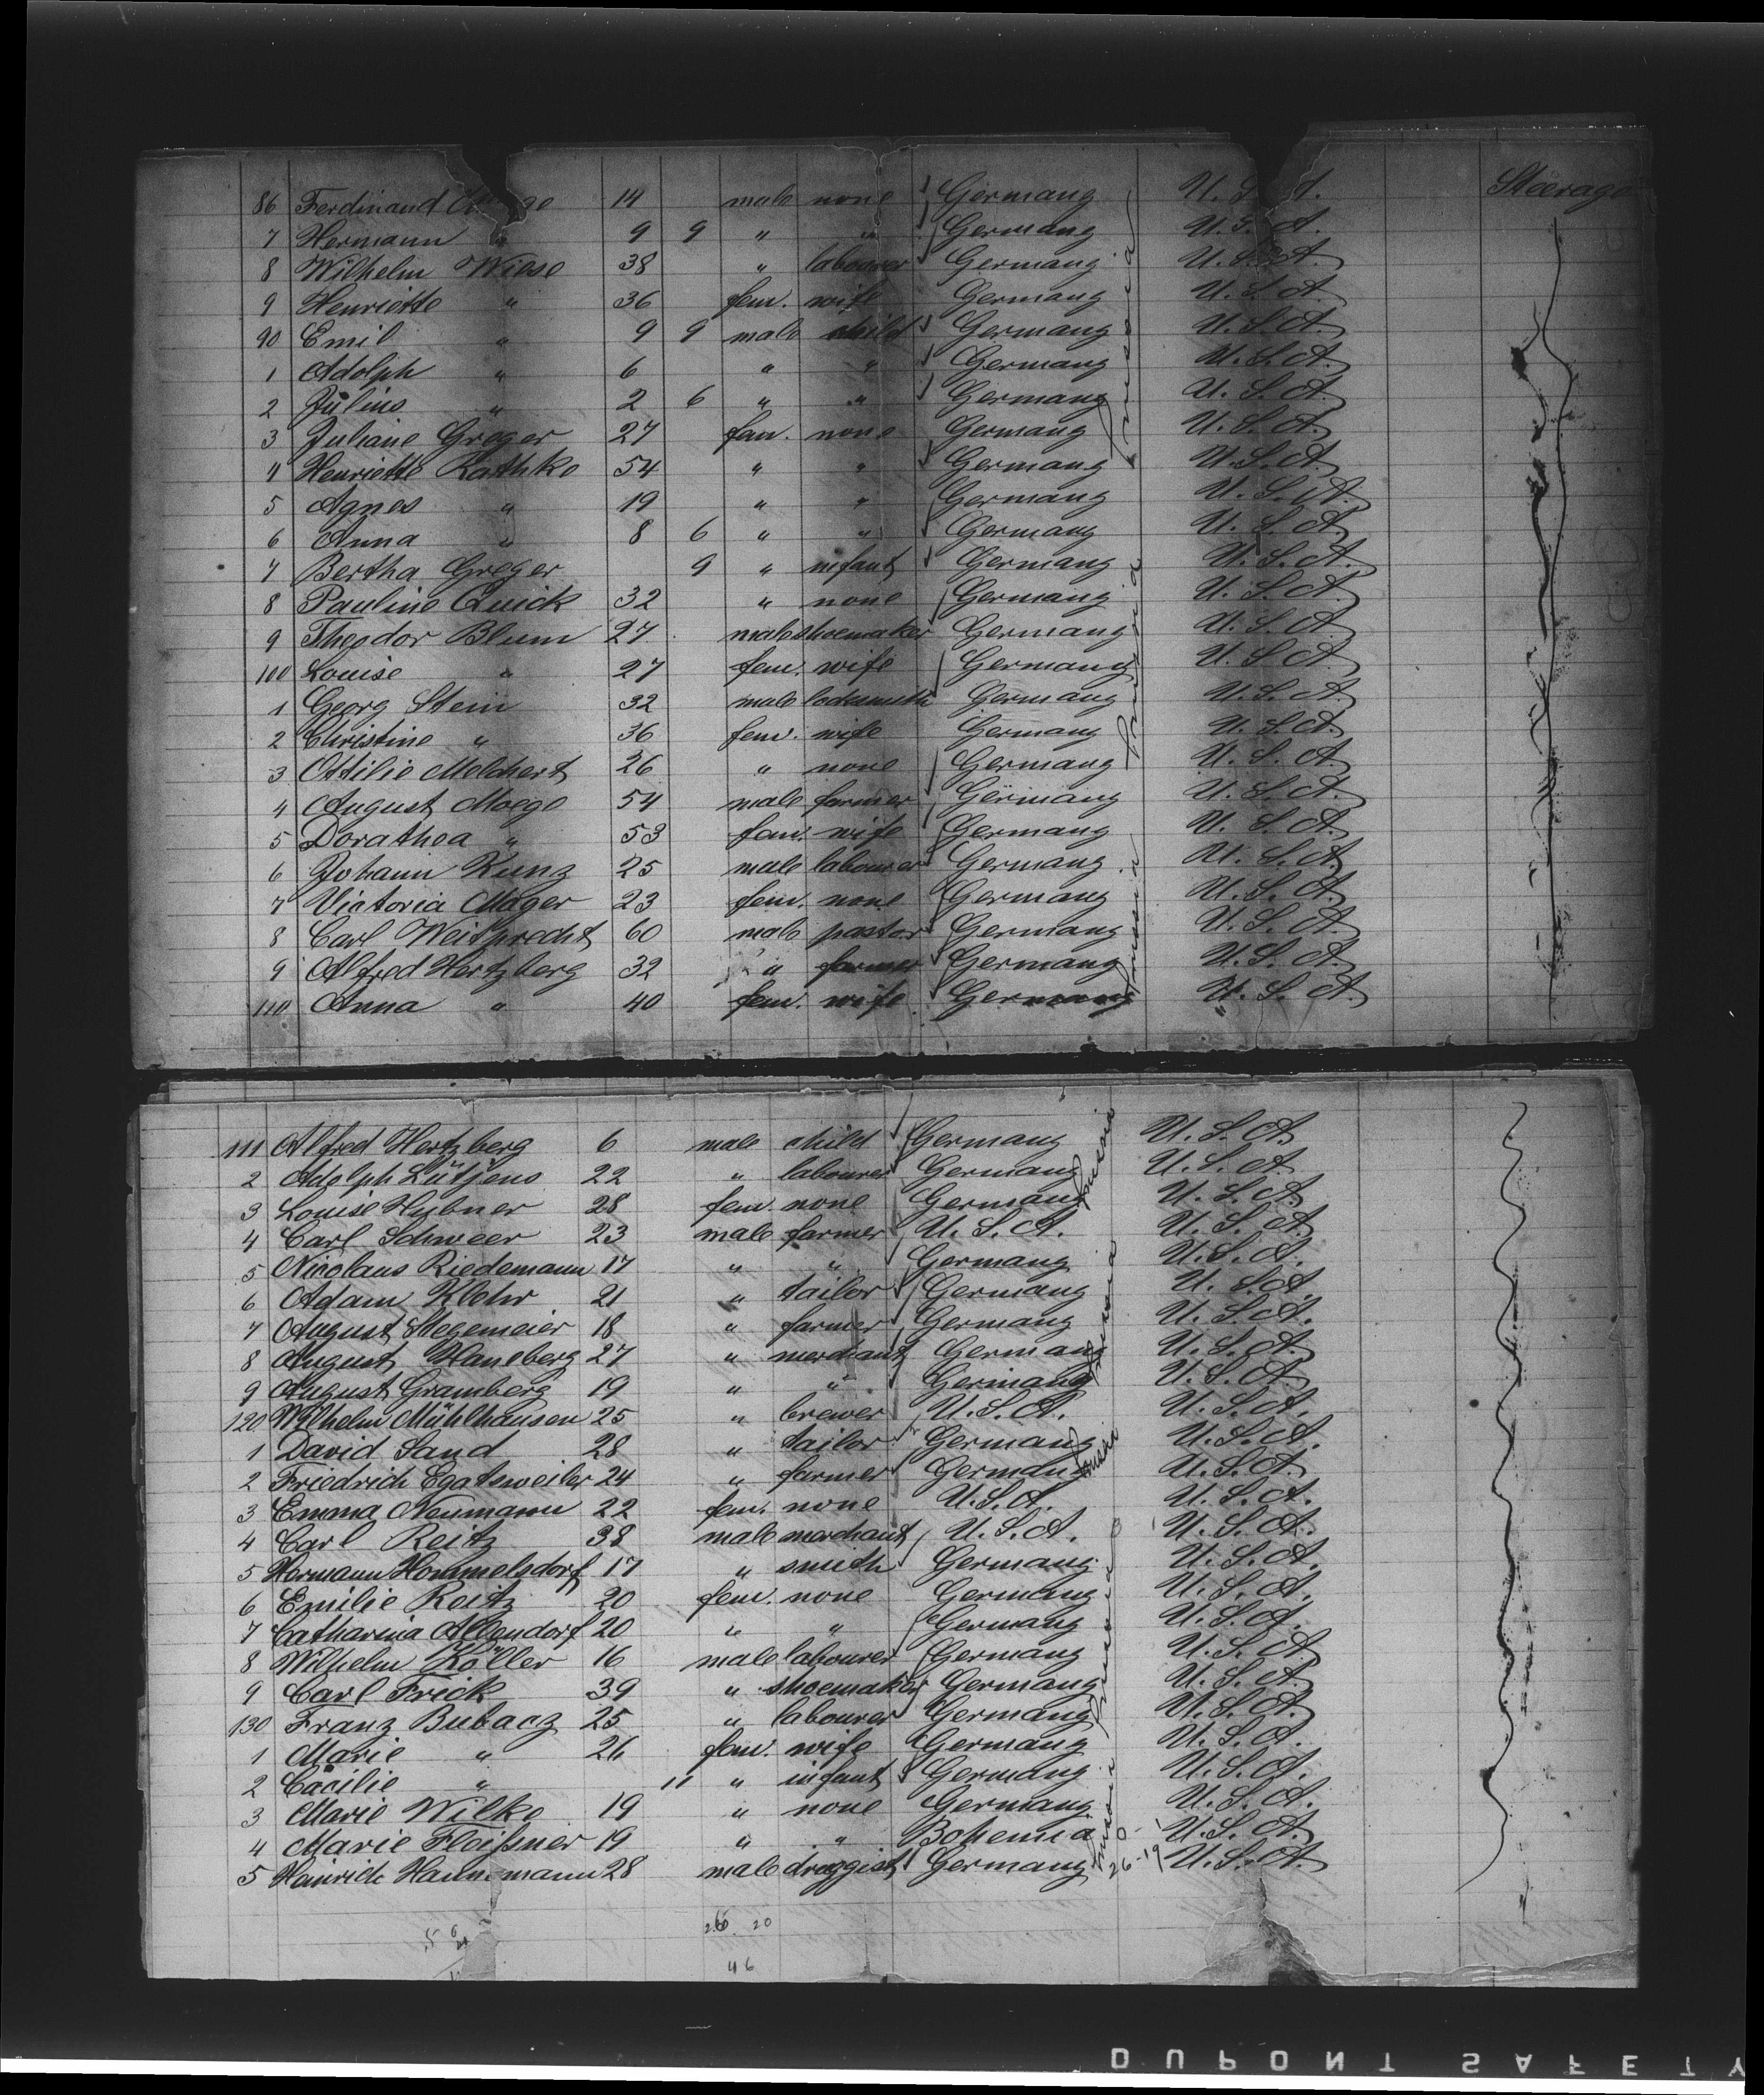 86 Ferdinand 14 male none Germany U. S. A. Steerage
7 Hermann " 9 9 " " Germany U. S. A.
8 Wilhelm Wiese 38 " labourer Germany U. S. A.
9 Henriette " 36 fem. wife Germany U. S. A.
90 Emil " 9 9 male child Germany U. S. A.
1 Adolph " 6 " " Germany U. S. A.
2 Julius " 2 6 " " Germany U. S. A.
3 Juliane Greger 27 fem. none Germany U. S. A.
4 Henriette Rathke 54 " " Germany U. S. A.
5 Agnes " 19 " " Germany U. S. A.
6 Anna " 8 6 " " Germany U. S. A.
7 Bertha Greger 9 " infant Germany U. S. A.
8 Pauline Quick 32 " none Germany U. S. A.
9 Theodor Blum 27 male shoemaker Germany U. S. A.
100 Louise " 27 fem. wife Germany U. S. A.
1 Georg Stein 32 male locksmith Germany U. S. A.
2 Christine " 36 fem. wife Germany U. S. A.
3 Ottilie Melchert 26 " none Germany U. S. A.
4 August Moege 54 male farmer Germany U. S. A.
5 Dorathea " 53 fem. wife Germany U. S. A.
6 Johann Kunz 25 male labourer Germany U. S. A.
7 Victoria Mager 23 fem. none Germany U. S. A.
8 Carl Weitprecht 60 male pastor Germany U. S. A.
9 Alfred Hertzberg 32 " farmer Germany U. S. A.
110 Anna " 40 fem. wife Germany U. S. A.
111 Alfred Hertzberg 6 male child Germany U. S. A.
2 Adolph Lütjens 22 " labourer Germany U. S. A.
3 Louise Hubner 28 fem. none Germany U. S. A.
4 Carl Schweer 23 male farmer U. S. A. U. S. A.
5 Nicolaus Riedemann 17 " " Germany U. S. A.
6 Adam Klohr 21 " tailor Germany U. S. A.
7 August Stegemeier 18 " farmer Germany U. S. A.
8 August Haneberg 27 " merchant Germany U. S. A.
9 August Gramberg 19 " " Germany U. S. A.
120 Wilhelm Mühlhausen 25 " brewer U. S. A. U. S. A.
1 David Sand 28 " tailor Germany U. S. A.
2 Friedrich Egatsweiler 24 " farmer Germany U. S. A.
3 Emma Neumann 22 fem. none U. S. A. U. S. A.
4 Carl Reitz 38 male merchant U. S. A. U. S. A.
5 Hermann Hommelsdorf 17 " smith Germany U. S. A.
6 Emilie Reitz 20 fem. none Germany U. S. A.
7 Catharina Allendorf 20 " " Germany U. S. A.
8 Wilhelm Köller 16 male labourer Germany U. S. A.
9 Carl Frick 39 " shoemaker Germany U. S. A.
130 Franz Bubacz 25 " labourer Germany U. S. A.
1 Marie " 26 fem. wife Germany U. S. A.
2 Cäcilie " 11 " infant Germany U. S. A.
3 Marie Wilke 19 " none Germany U. S. A.
4 Marie Fleißner 19 " " Bohemia U. S. A.
5 Heinrich Hannemann 28 male druggist Germany 26-19 U. S. A.
26 20
46
DUPONT SAFETY